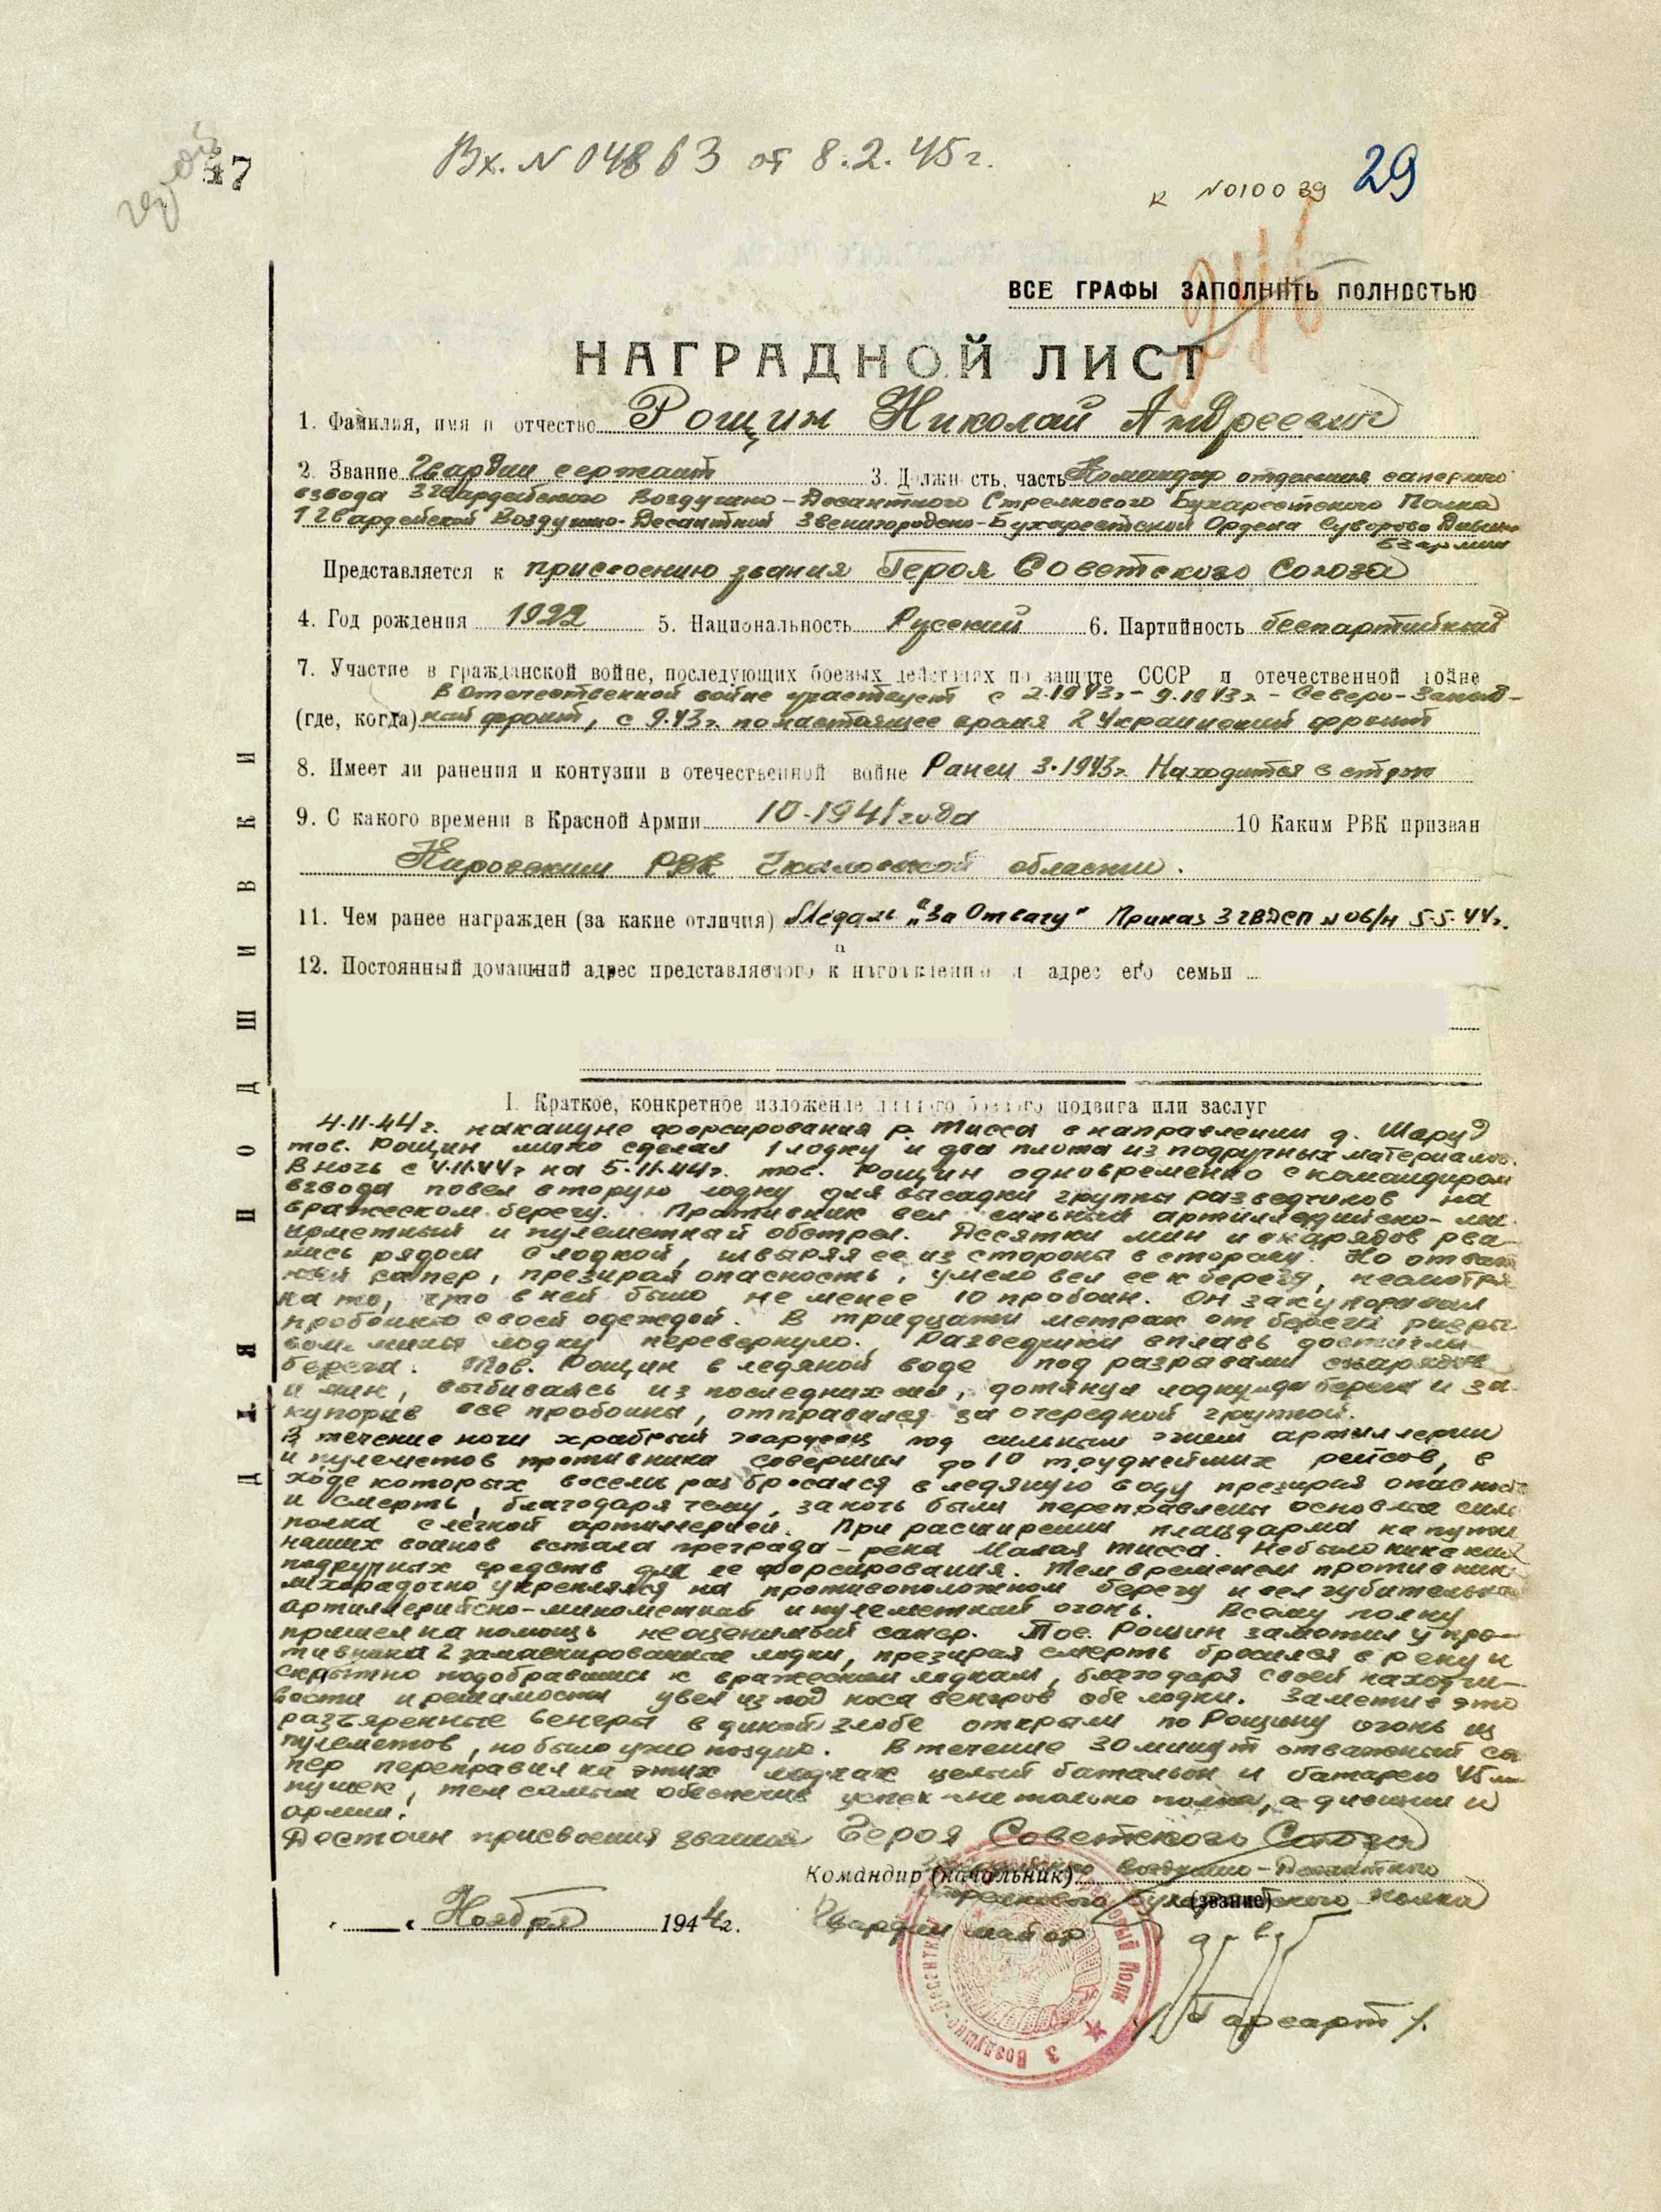 47
Вх. N 04863 от 8.2.45г.
к N010039 29
246
ВСЕ ГРАФЫ ЗАПОЛНИТЬ ПОЛНОСТЬЮ
НАГРАДНОЙ ЛИСТ
1. Фамилия, имя и отчество Рощин Николай Андреевич
2. Звание Гвардии сержант 3. Должность, часть Командир отделения саперного
взвода 3 Гвардейского Воздушно-Десантного Стрелкового Бухарестского Полка
1 Гвардейской Воздушно-Десантной Звенигородско-Бухарестской Ордена Суворова Дивизии
53 армии
Представляется к присвоению звания Героя Советского Союза
4. Год рождения 1922 5. Национальность Русский 6. Партийность беспартийный
7. Участие в гражданской войне, последующих боевых действиях по защите СССР и отечественной войне
В Отечественной войне участвует с 2.1943г-9.1943г - Северо-Запад-
(где, когда) ный фронт, с 9.43г. по настоящее время 2 Украинский фронт
8. Имеет ли ранения и контузии в отечественной войне Ранен 3.1943г. Находится в строю
9. С какого времени в Красной Армии 10-1941 года 10 Каким РВК призван
Кировским РВК Чкаловской области.
11. Чем ранее награжден (за какие отличия) Медаль „За Отвагу" Приказ 3 гвдсп N 06/н 5.5.44г.
12. Постоянный домашний адрес представляемого к награждению и адрес его семьи
ДЛЯ ПОДШИВКИ
I. Краткое, конкретное изложение личного боевого подвига или заслуг
4.11.44г. накануне форсирования р. Тисса в направлении д. Шаруд
тов. Рощин лично сделал 1 лодку и два плота из подручных материалов.
В ночь с 4.11.44г на 5.11.44г. тов. Рощин одновременно с командиром
взвода повел вторую лодку для высадки группы разведчиков на
вражеском берегу. Противник вел сильный артиллерийско-ми-
нометный и пулеметный обстрел. Десятки мин и снарядов рва-
лись рядом с лодкой, швыряя ее из стороны в сторону. Но отваж-
ный сапер, презирая опасность, умело вел ее к берегу, несмотря
на то, что в ней было не менее 10 пробоин. Он закупоривал
пробоины своей одеждой. В тридцати метрах от берега разры-
вом мины лодку перевернуло. Разведчики вплавь достигли
берега. Тов. Рощин в ледяной воде под разрывами снарядов
и мин, выбиваясь из последних сил, дотянул лодку до берега и за-
купорив все пробоины, отправился за очередной группой.
В течение ночи храбрый гвардеец под сильным огнем артиллерии
и пулеметов противника совершил до 10 труднейших рейсов, в
ходе которых восемь раз бросался в ледяную воду презирая опасность
и смерть, благодаря чему, за ночь были переправлены основные силы
полка с легкой артиллерией. При расширении плацдарма на пути
наших воинов встала преграда - река Малая Тисса. Не было никаких
подручных средств для ее форсирования. Тем временем противник
лихорадочно укреплялся на противоположном берегу и вел губительный
артиллерийско-минометный и пулеметный огонь. Всему полку
пришел на помощь неоценимый сапер. Тов. Рощин заметил у про-
тивника 2 замаскированные лодки, презирая смерть бросился в реку и
скрытно подобравшись к вражеским лодкам, благодаря своей находчи-
вости и решимости увел из под носа венгров обе лодки. Заметив это
разъяренные венгры в дикой злобе открыли по Рощину огонь из
пулеметов, но было уже поздно. В течение 30 минут отважный са-
пер переправил на этих лодках целый батальон и батарею 45 мм
пушек, тем самым обеспечив успех не только полка, а дивизии и
армии.
Достоин присвоения звания Героя Советского Союза
Командир (начальник) Воздушно-Десантного
Стрелкового Бухарестского полка
(звание)
„ " Ноября 1944г. Гвардии майор
3 Воздушно-Десантный Полк